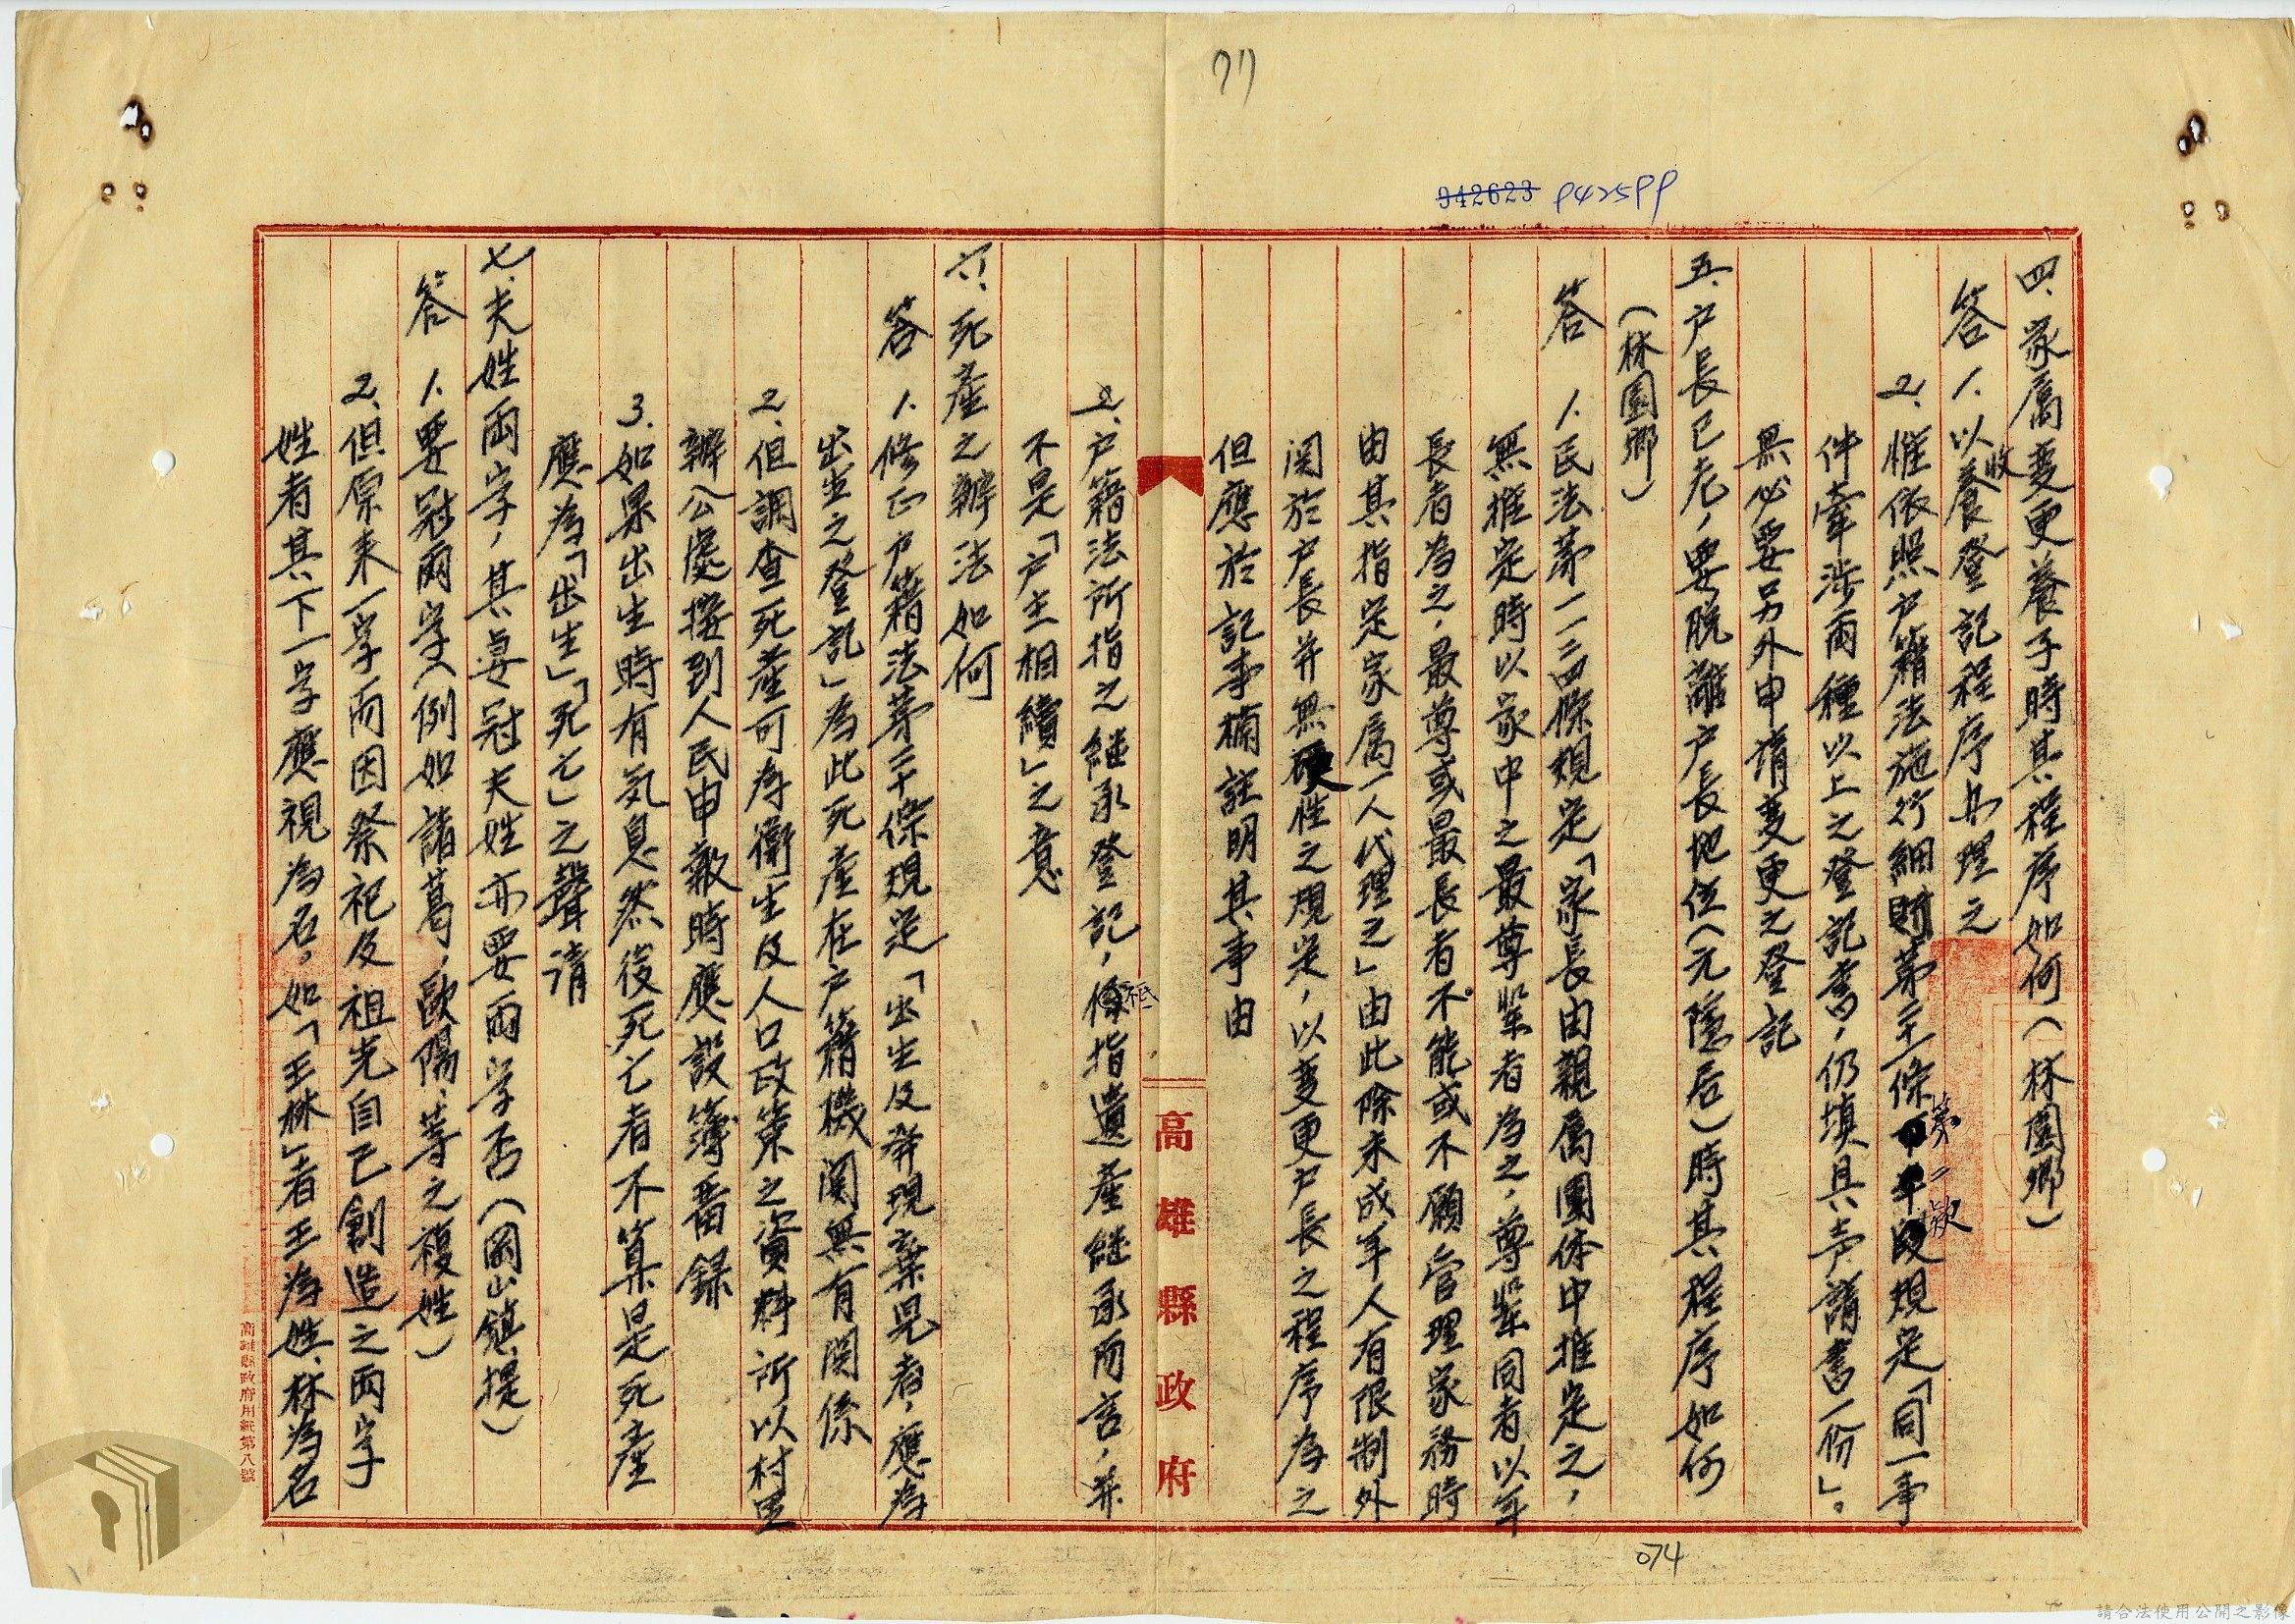 77
942623 942599
四、家屬変更養子時其程序如何(林園鄉)
答 1.以收養登記程序办理之
2.惟依照户籍法施行細則第二十一條第二款規定「同一事
件牽涉兩種以上之登記者，仍填具声請書一份」。
無必要另外申請変更之登記
五、户長已老，要脫離户長地位(元隱居)時其程序如何
(林園鄉)
答 1.民法第一一二四條規定「家長由親属團体中推定之，
無推定時以家中之最尊輩者為之，尊輩同者以年
長者為之，最尊或最長者不能或不願管理家務時
由其指定家属一人代理之」由此除未成年人有限制外
関於户長并無硬性之規定，以変更户長之程序為之
但應於記事欄註明其事由
高雄縣政府
2.户籍法所指之継承登記，祇指遺產継承而言，并
不是「户主相續」之意
六、死產之辦法如何
答 1.修正户籍法第二十條規定「出生及發現棄児者，應為
出生之登記」為此死產在户籍機関無有関係
2.但調查死產可為衛生及人口政策之資料所以村里
辦公處接到人民申報時應設簿畨録
3.如果出生時有気息然後死亡者不算是死產
應為「出生」「死亡」之聲請
七、夫姓兩字，其妻冠夫姓亦要兩字否(岡山鎮提)
答 1.要冠兩字(例如諸葛，歐陽，等之複姓)
2.但原来一字而因祭祀及祖先自己創造之兩字
姓者其下一字應視為名，如「王林」者王為姓，林為名
高雄縣政府用紙第八號
074
請合法使用公開之影像